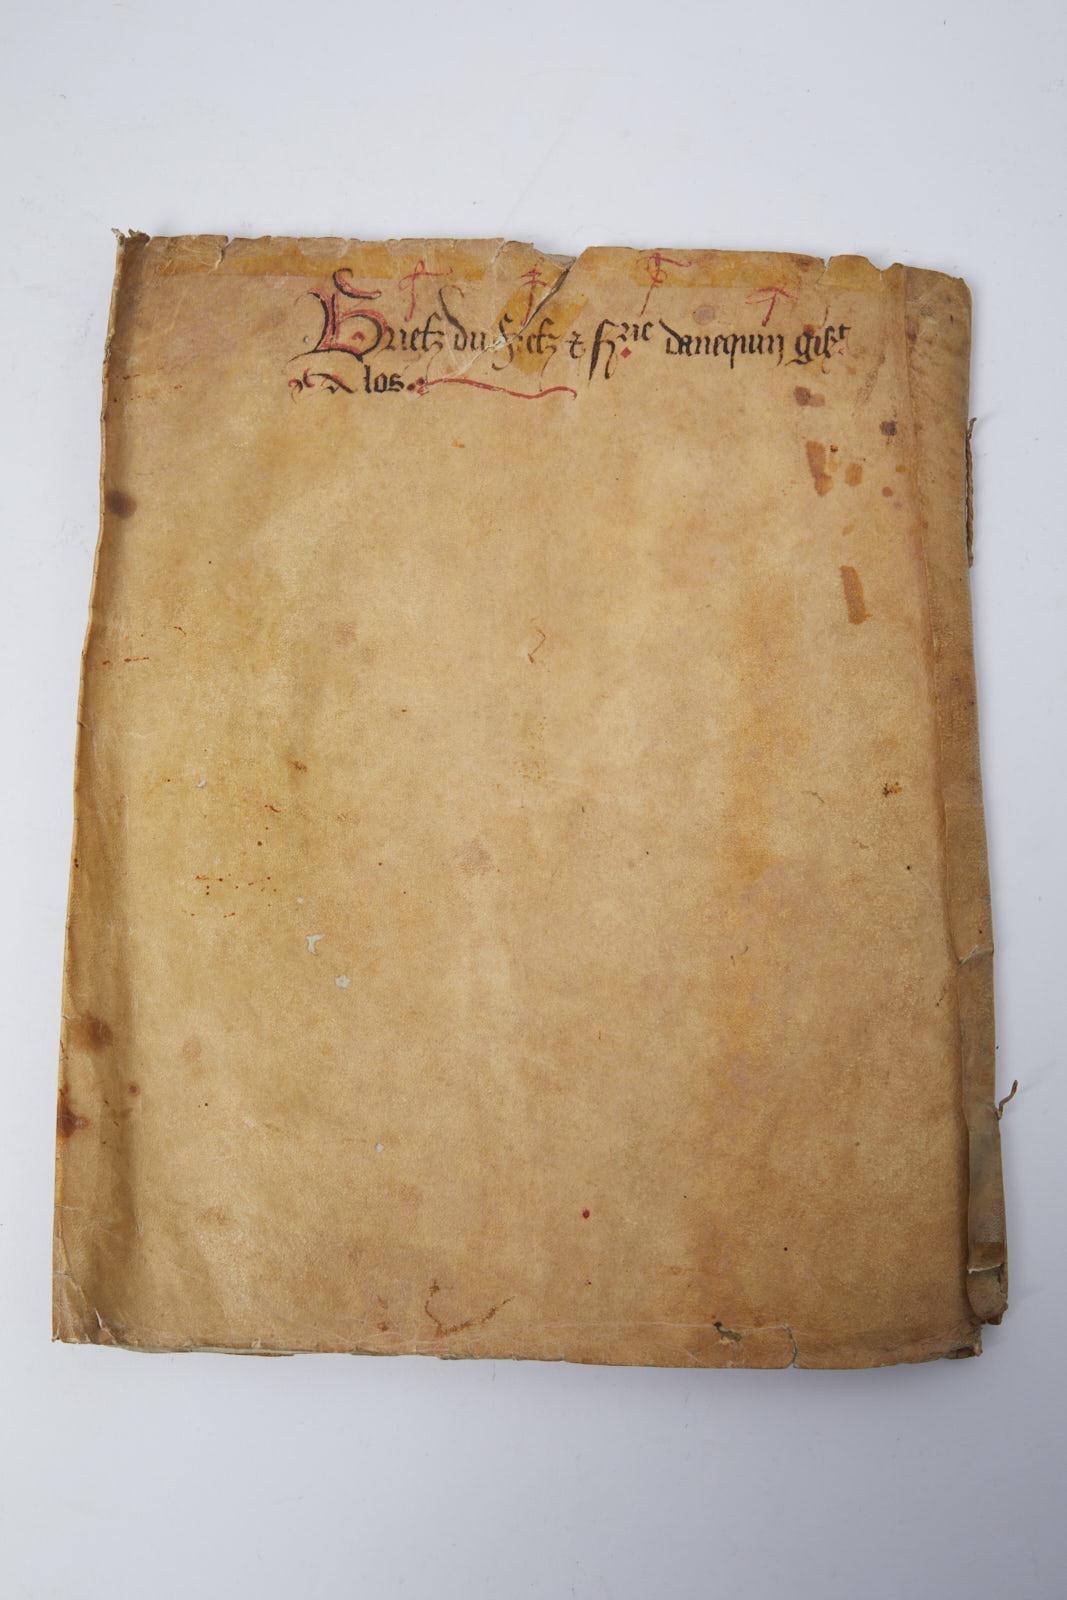 Briefz du fiefz & srie danequin gist
A los